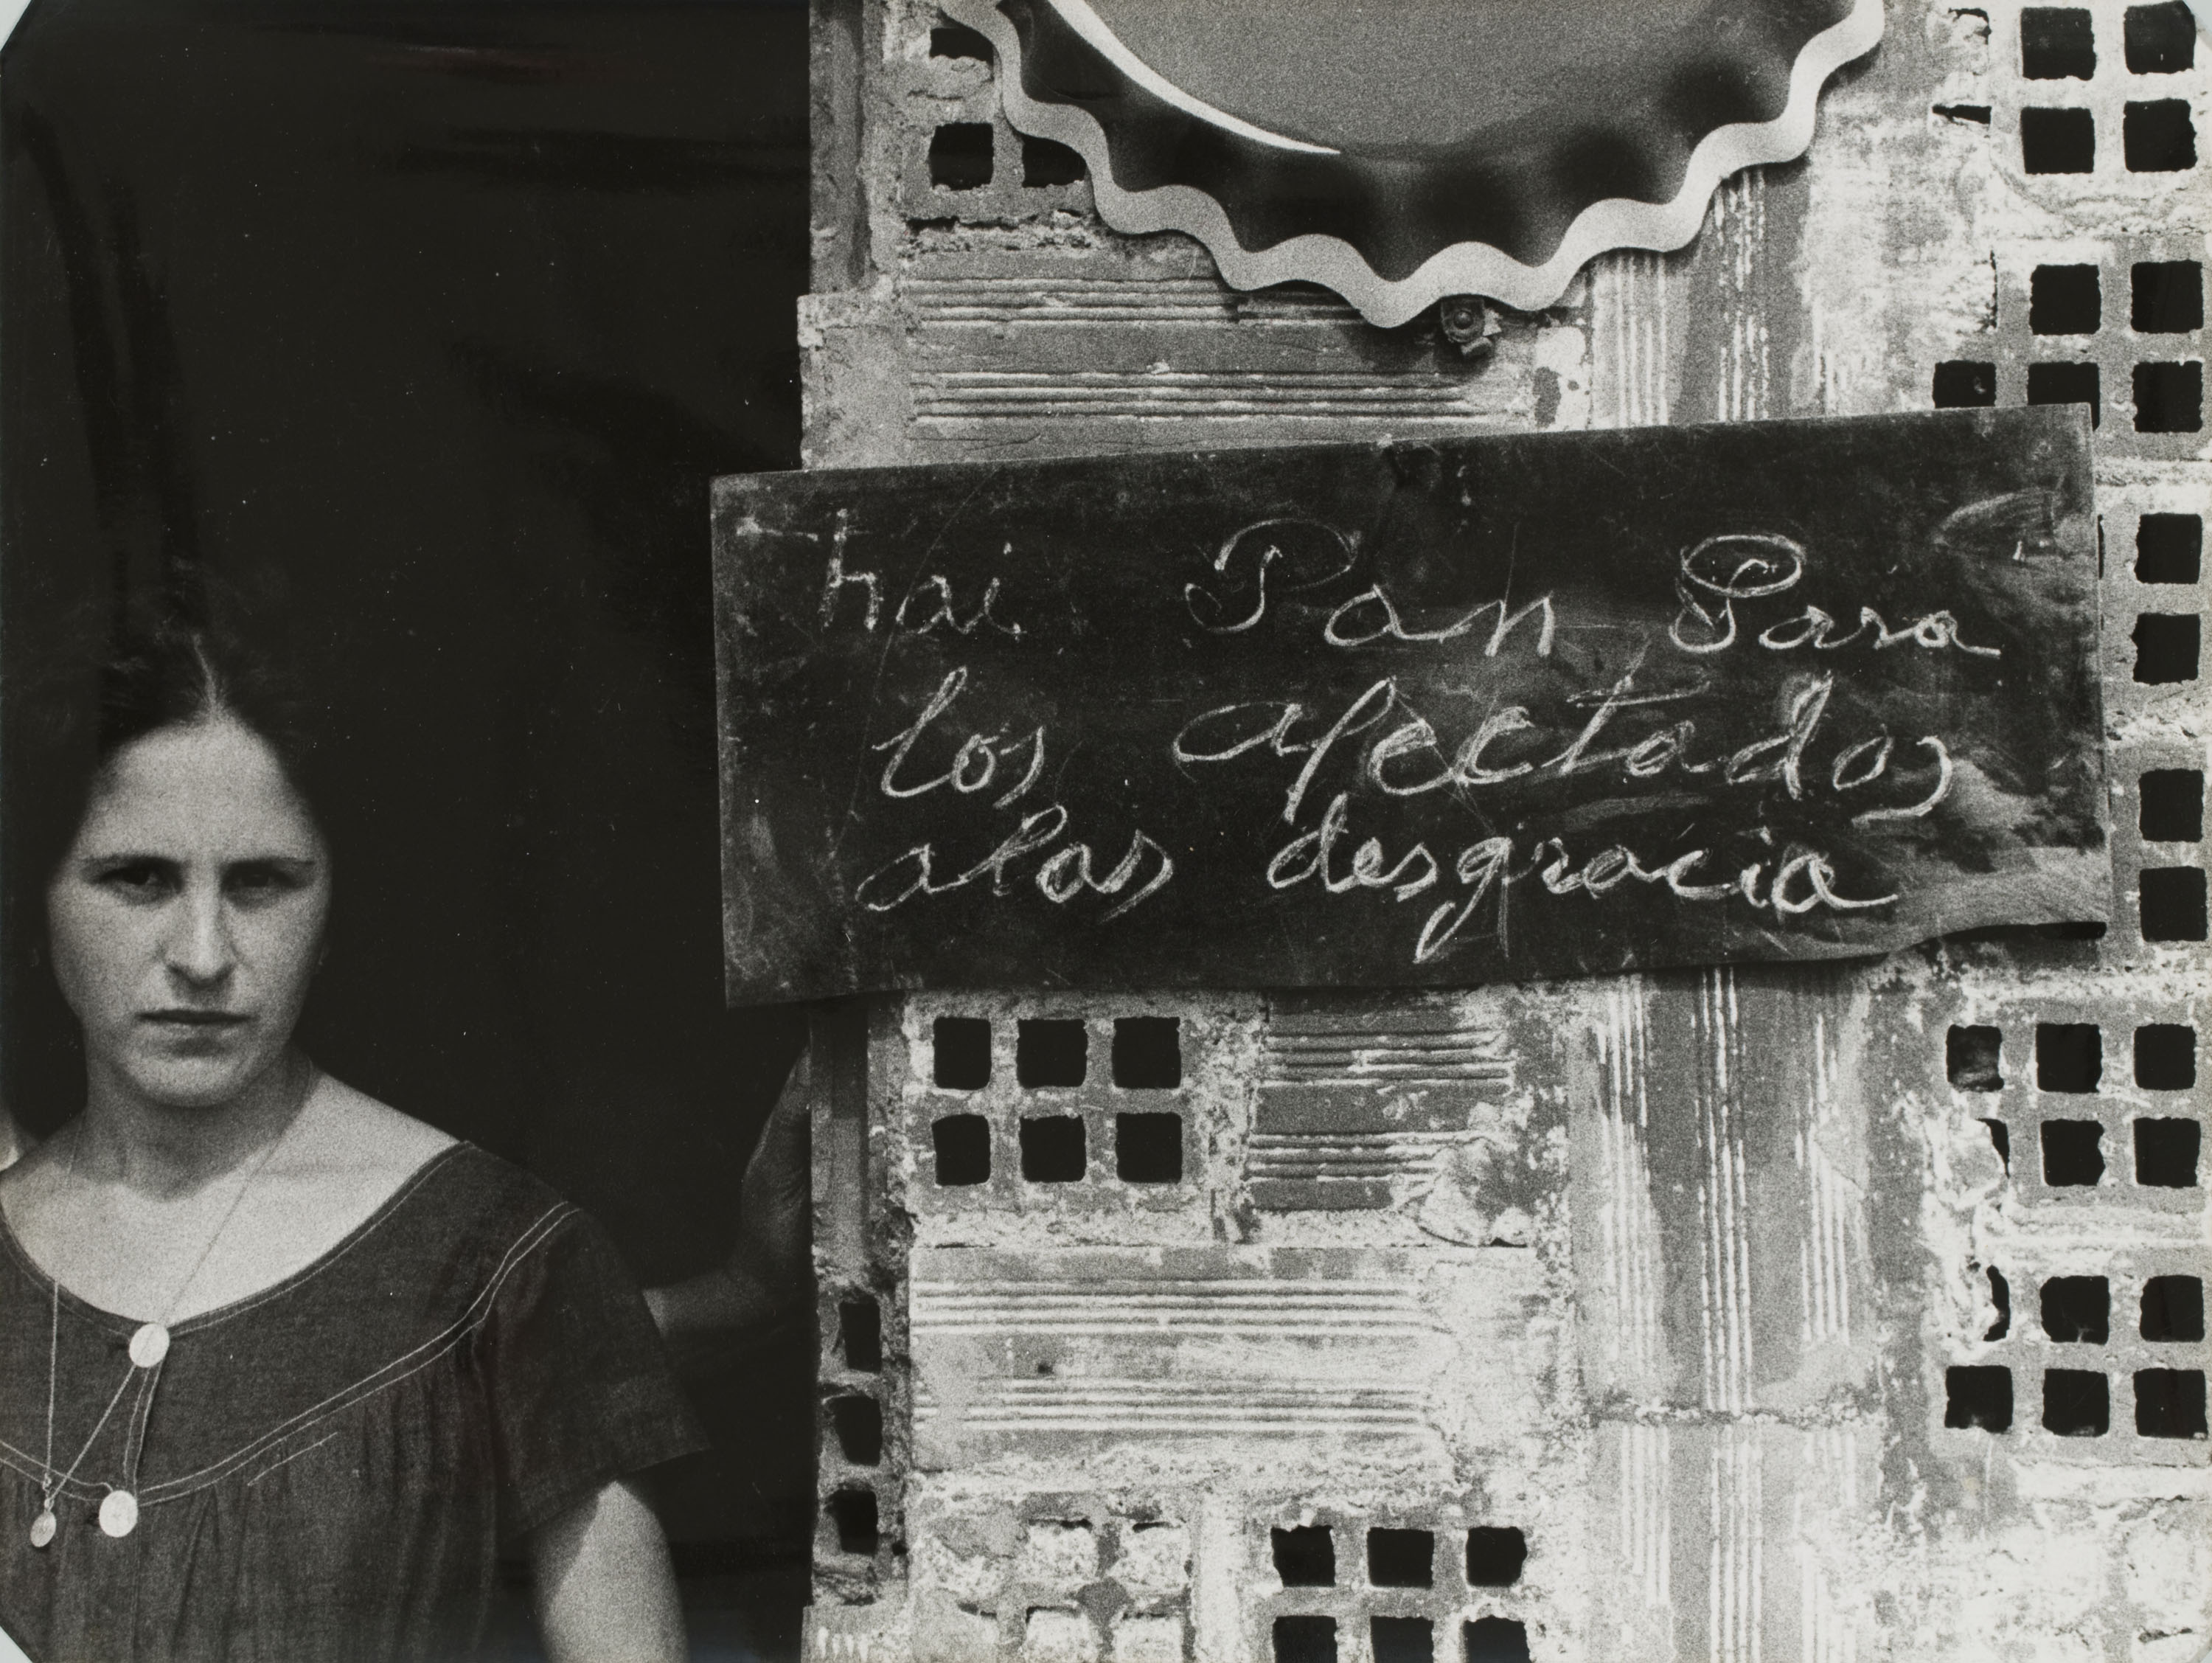 hai Pan Para
los afectados
alas desgracia